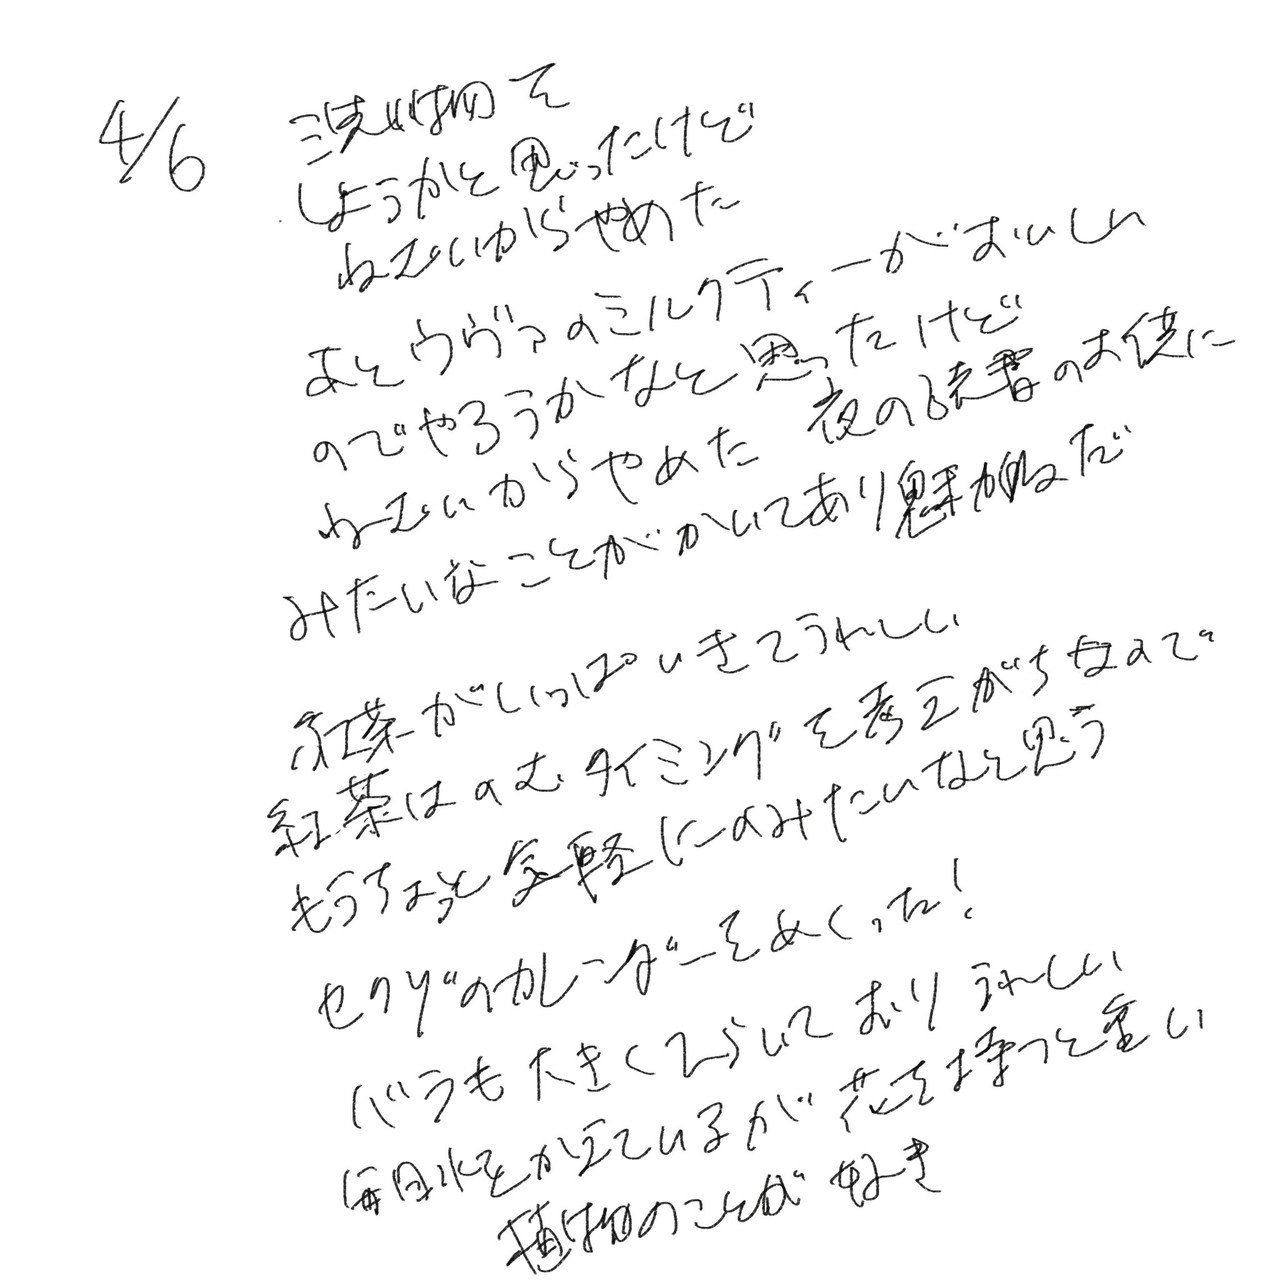 4/6
洗い物を
しようかと思ったけど
ねむいからやめた
あとウヴァのミルクティーがおいしい
のでやろうかなと思ったけど
ねむいからやめた 夜の読書のお供に
みたいなことがかいてあり魅力的だ
紅茶がいっぱいきてうれしい
紅茶はのむタイミングを考えがちなので
もうちょっと気軽にのみたいなと思う
セクゾのカレンダーをめくった!
バラも大きくひらいており うれしい
毎日水をかえているが花を持つと重い
植物のことが好き